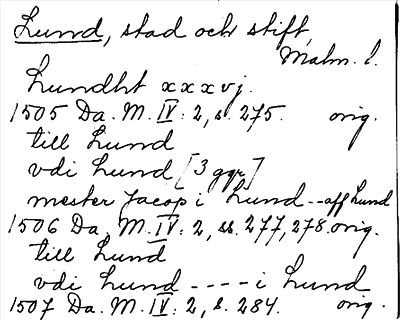 Lund, stad och stift,
Malm. l.
Lundht xxxvj.
1505 Da. M. IV: 2, s. 275. orig.
till Lund
vdi Lund [3 ggr]
mester Jacop i Lund -- aff Lund
1506 Da. M. IV: 2, ss. 277, 278. orig.
till Lund
vdi Lund ---- i Lund
1507 Da. M. IV: 2, s. 284. orig.